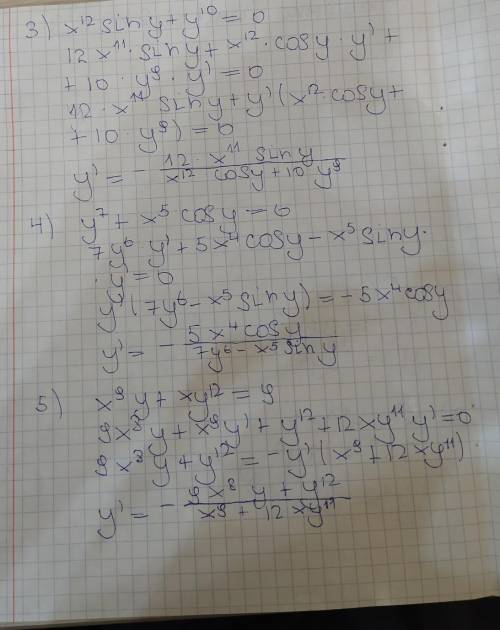 3) x¹² sin y + y¹⁰ = 0
12 x¹¹ · sin y + x¹² · cos y · y' +
+ 10 · y⁹ · y' = 0
12 · x¹¹ sin y + y' ( x¹² · cos y +
+ 10 · y⁹ ) = 0
y' = - 12 · x¹¹ sin y / x¹² cos y + 10 y⁹
4) y⁷ + x⁵ cos y = 6
7y⁶ y' + 5x⁴ cos y - x⁵ sin y ·
· y' = 0
y' ( 7y⁶ - x⁵ sin y ) = - 5x⁴ cos y
y' = - 5 x⁴ cos y / 7y⁶ - x⁵ sin y
5) x⁹ y + x y¹² = 9
9 x⁸ y + x⁹ y' + y¹² + 12 x y¹¹ y' = 0
9 x⁸ y + y¹² = - y' ( x⁹ + 12 x y¹¹ )
y' = - 9 x⁸ y + y¹² / x⁹ + 12 x y¹¹